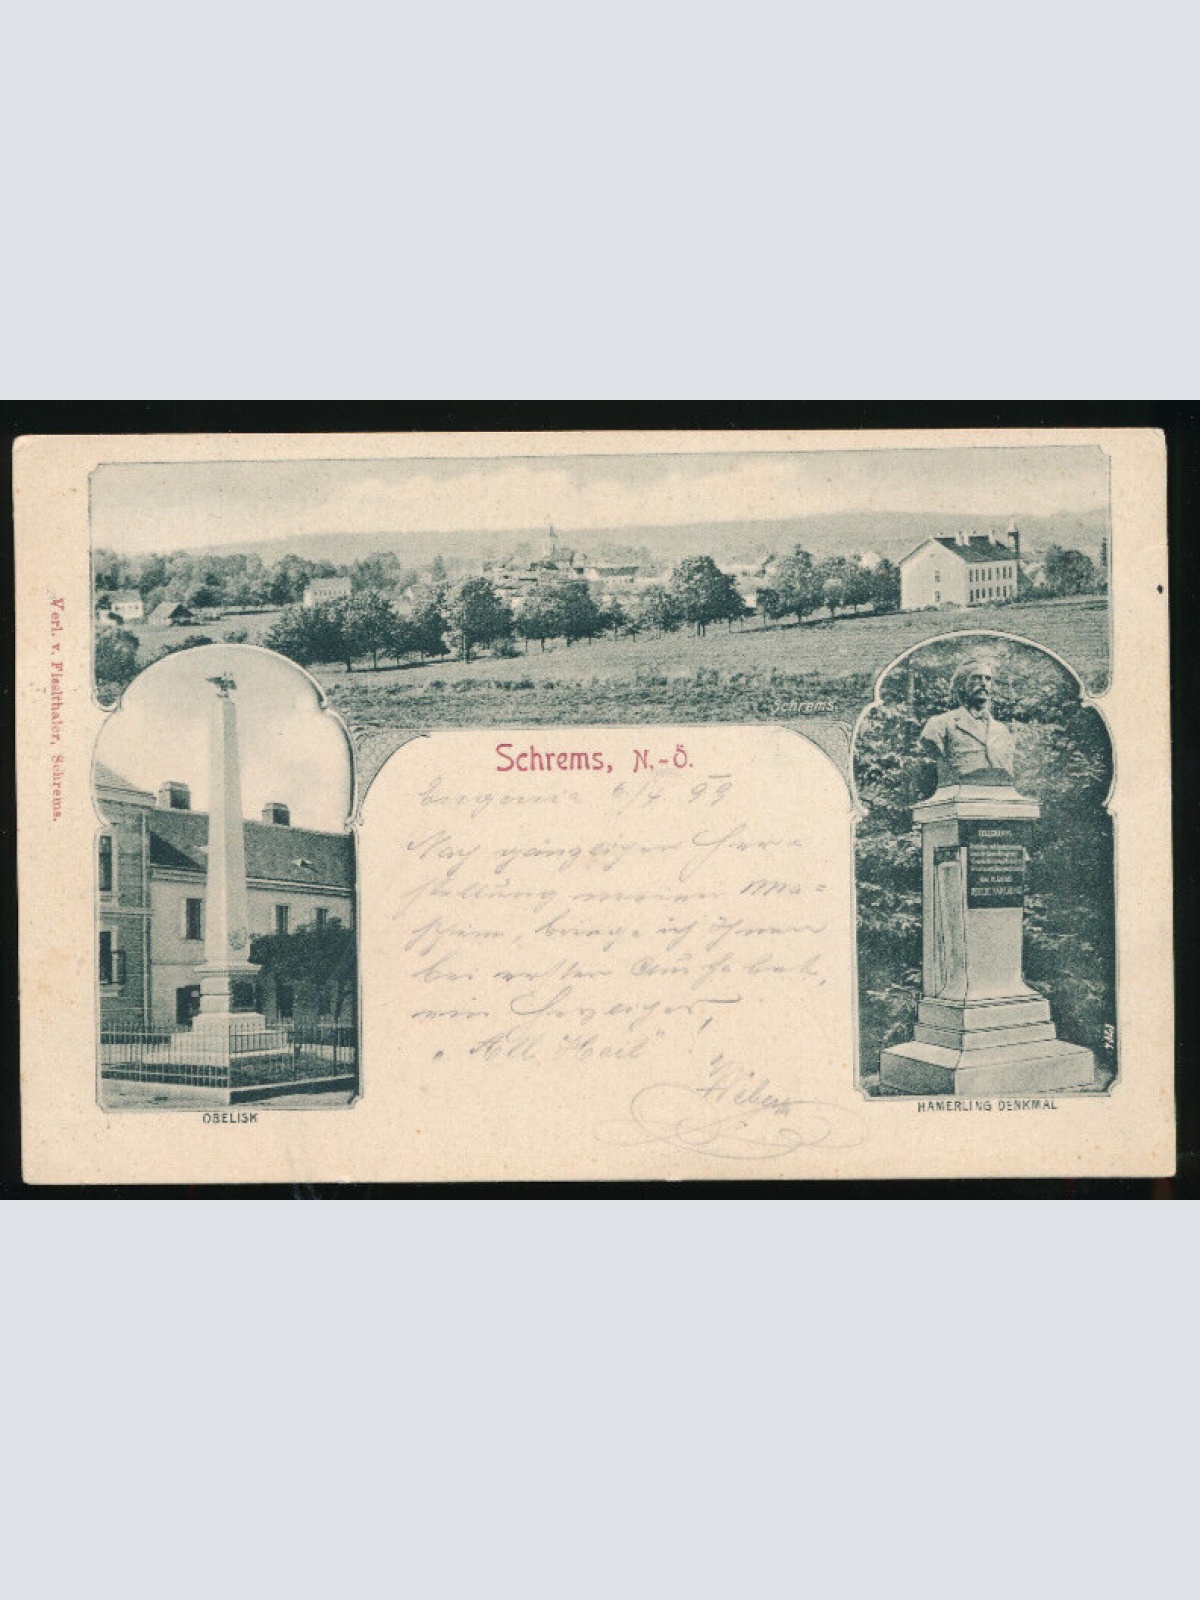 Verl. v. Fleithaler, Schrems.
Schrems
Schrems, N.-Ö.
Eugenia 6/7. 99
Nach gänzlicher Her-
stellung meiner Ma-
schine, bringe ich Ihnen
bei erster Ausfahrt,
ein herzliches,
"All Heil"
Weber
OBELISK
HAMERLING DENKMAL